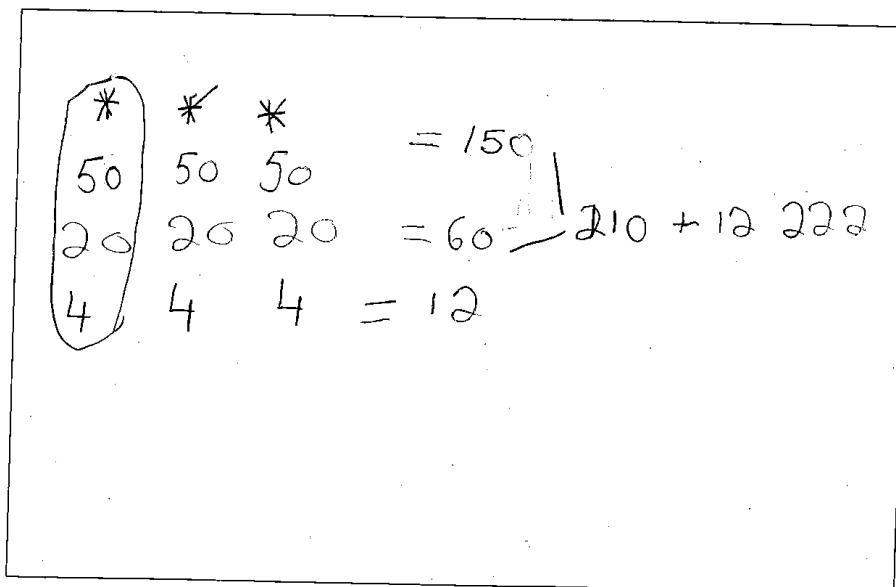 * * *
50 50 50 = 150
20 20 20 = 60 210 + 12 222
4 4 4 = 12